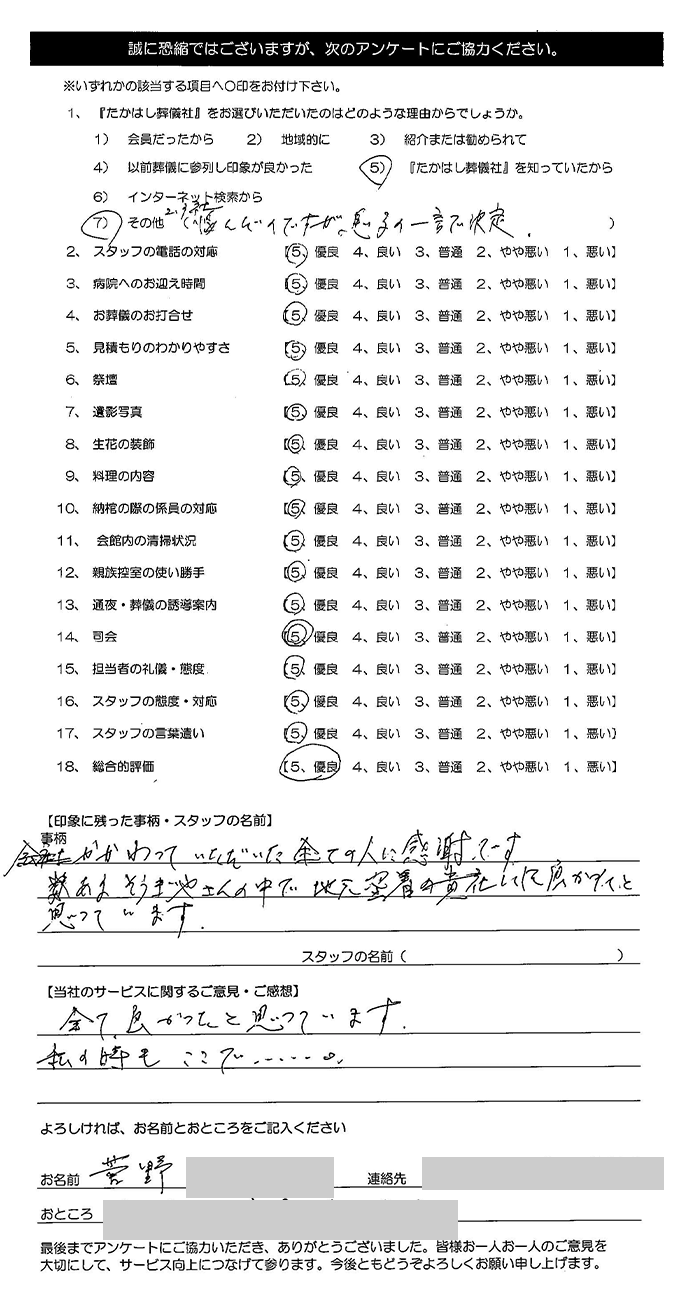 誠に恐縮ではございますが、次のアンケートにご協力ください。
※いずれかの該当する項目へ○印をお付け下さい。
1、『たかはし葬儀社』をお選びいただいたのはどのような理由からでしょうか。
1) 会員だったから 2) 地域的に 3) 紹介または勧められて
4) 以前葬儀に参列し印象が良かった 5) 『たかはし葬儀社』を知っていたから
6) インターネット検索から
2、3社
7) その他 で悩んだのですが、息子の一言で決定. )
2、スタッフの電話の対応 【5、優良 4、良い 3、普通 2、やや悪い 1、悪い】
3、病院へのお迎え時間 【5、優良 4、良い 3、普通 2、やや悪い 1、悪い】
4、お葬儀のお打合せ 【5、優良 4、良い 3、普通 2、やや悪い 1、悪い】
5、見積もりのわかりやすさ 【5、優良 4、良い 3、普通 2、やや悪い 1、悪い】
6、祭壇 【5、優良 4、良い 3、普通 2、やや悪い 1、悪い】
7、遺影写真 【5、優良 4、良い 3、普通 2、やや悪い 1、悪い】
8、生花の装飾 【5、優良 4、良い 3、普通 2、やや悪い 1、悪い】
9、料理の内容 【5、優良 4、良い 3、普通 2、やや悪い 1、悪い】
10、納棺の際の係員の対応 【5、優良 4、良い 3、普通 2、やや悪い 1、悪い】
11、会館内の清掃状況 【5、優良 4、良い 3、普通 2、やや悪い 1、悪い】
12、親族控室の使い勝手 【5、優良 4、良い 3、普通 2、やや悪い 1、悪い】
13、通夜・葬儀の誘導案内 【5、優良 4、良い 3、普通 2、やや悪い 1、悪い】
14、司会 【5、優良 4、良い 3、普通 2、やや悪い 1、悪い】
15、担当者の礼儀・態度 【5、優良 4、良い 3、普通 2、やや悪い 1、悪い】
16、スタッフの態度・対応 【5、優良 4、良い 3、普通 2、やや悪い 1、悪い】
17、スタッフの言葉遣い 【5、優良 4、良い 3、普通 2、やや悪い 1、悪い】
18、総合的評価 【5、優良 4、良い 3、普通 2、やや悪い 1、悪い】
【印象に残った事柄・スタッフの名前】
事柄
かかわっていただいた全ての人に感謝です
数あるそうぎやさんの中で地元密着の貴社にして良かったと
思っています.
スタッフの名前( )
【当社のサービスに関するご意見・ご感想】
全て良かったと思っています.
私の時もここで......。
よろしければ、お名前とおところをご記入ください
お名前 菅野 連絡先
おところ
最後までアンケートにご協力いただき、ありがとうございました。皆様お一人お一人のご意見を
大切にして、サービス向上につなげて参ります。今後ともどうぞよろしくお願い申し上げます。